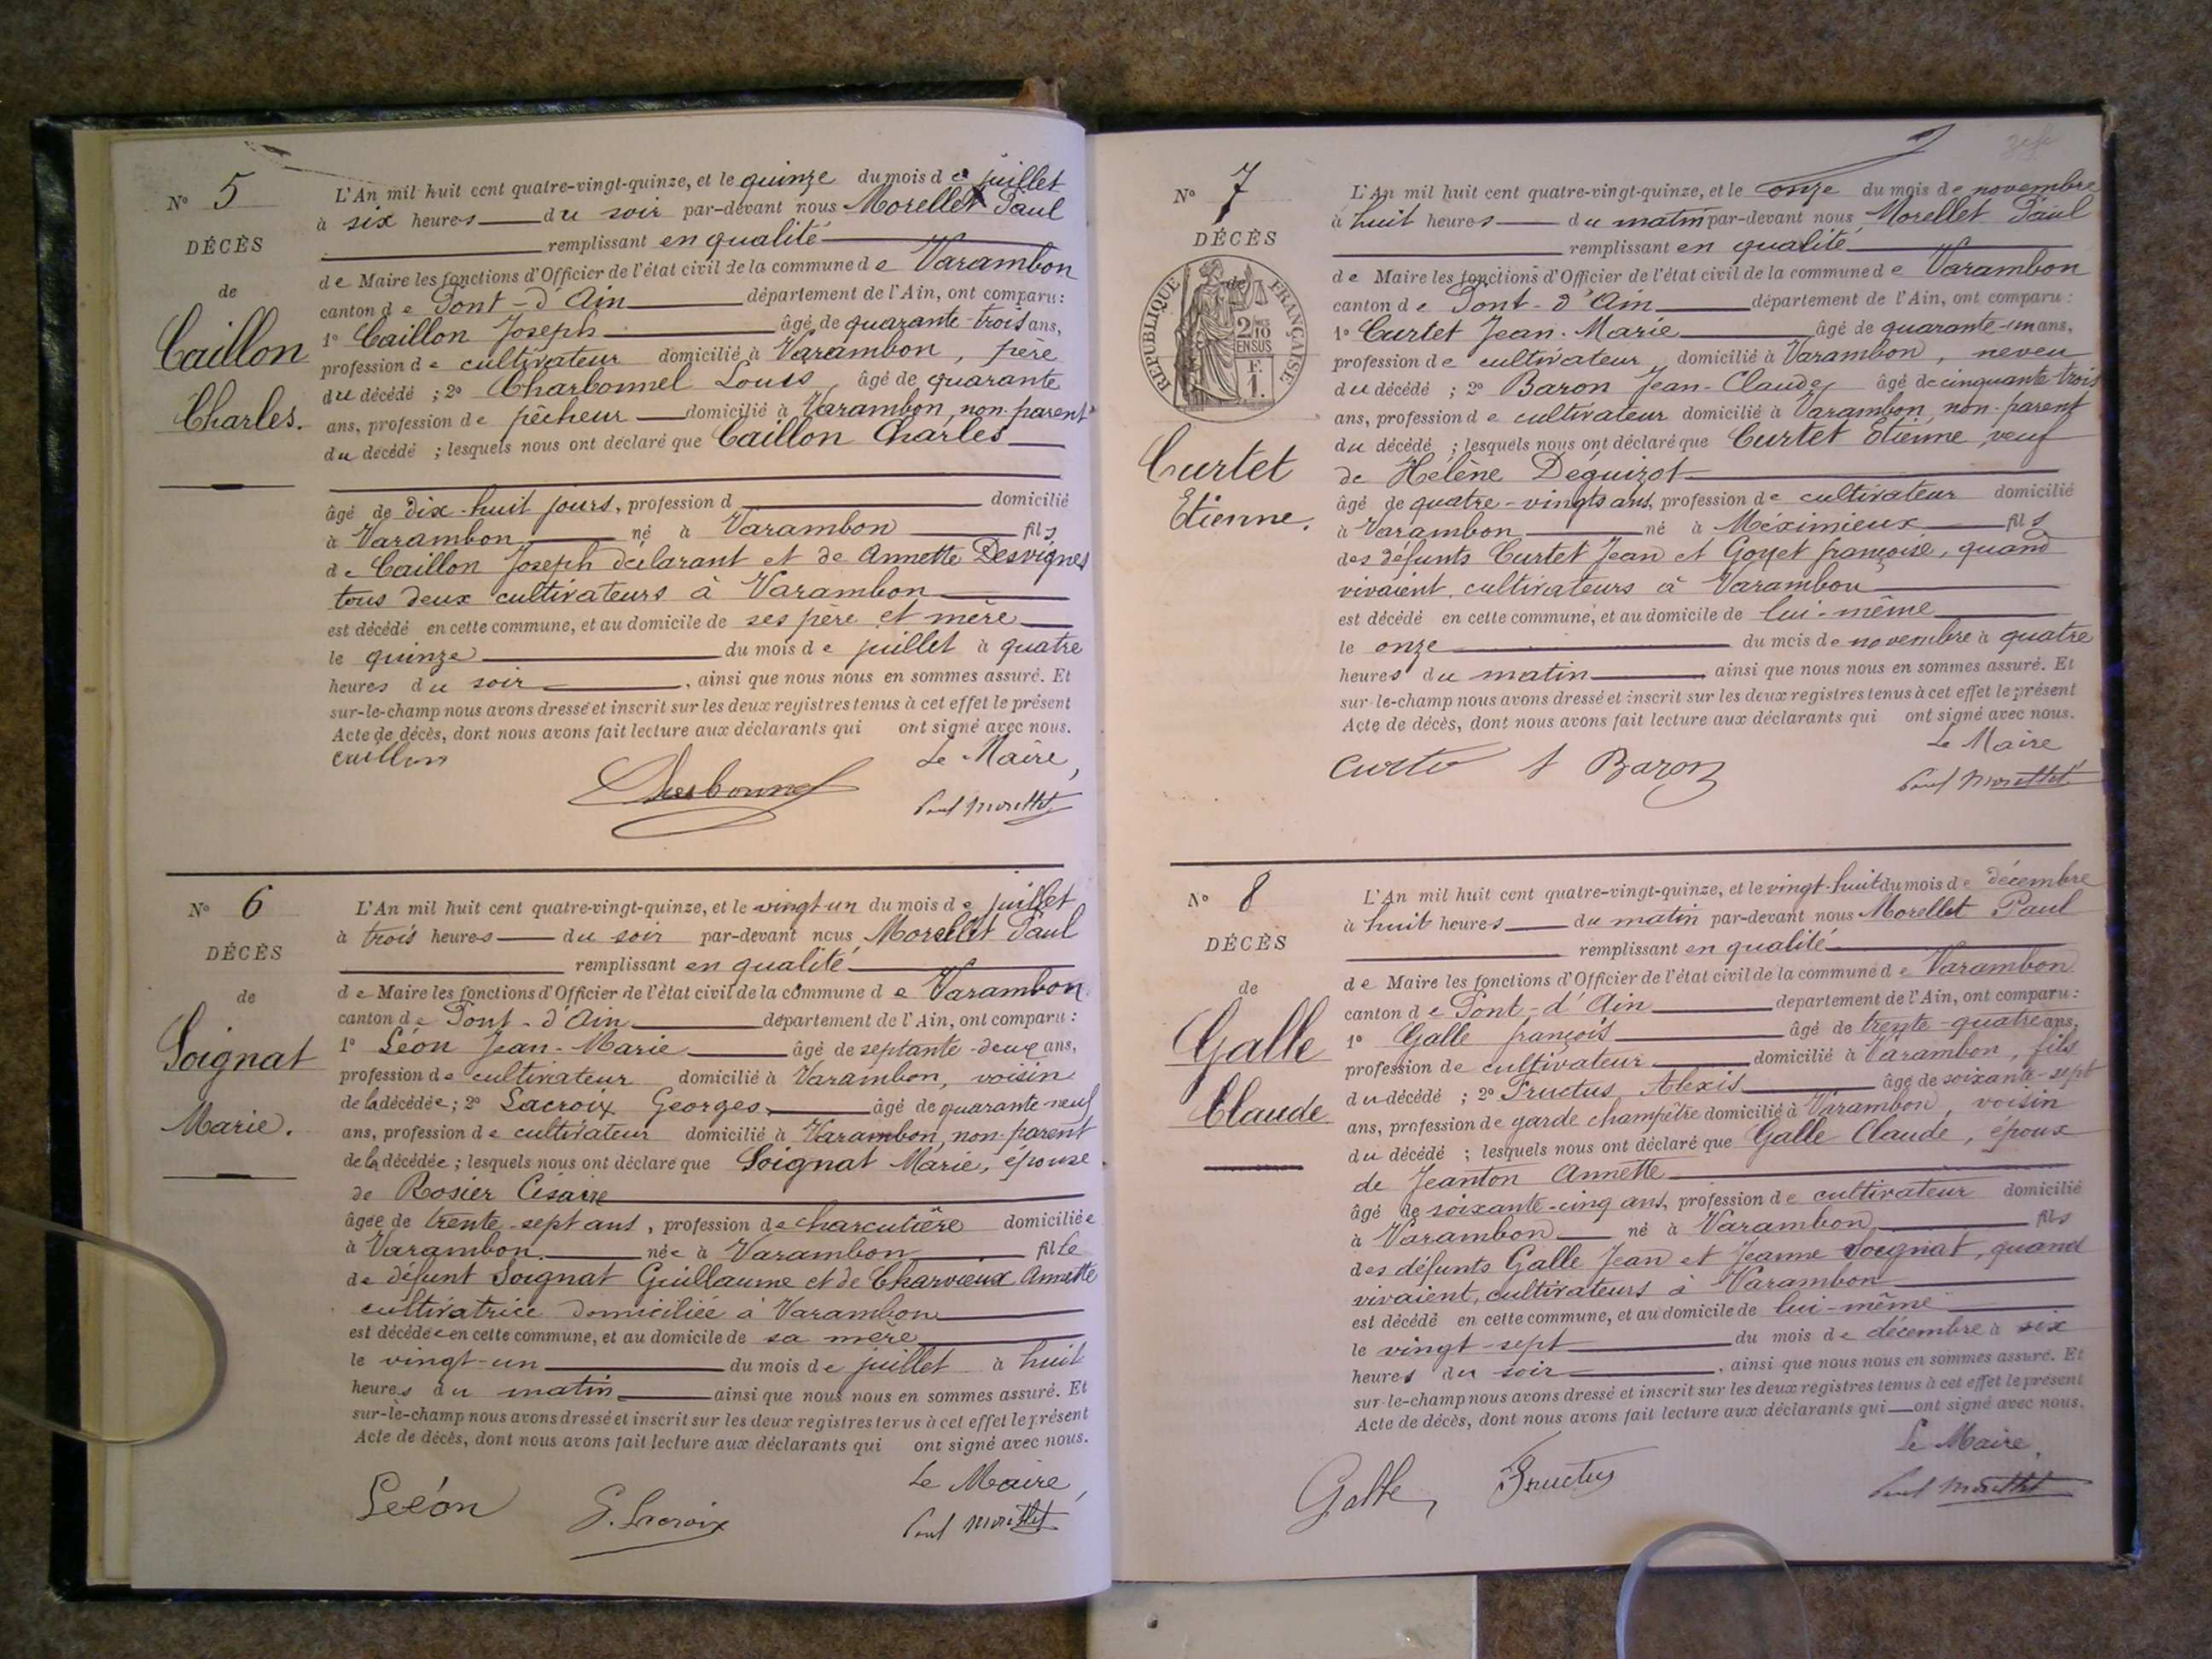 N° 5
DÉCÈS
de
Caillon
Charles.
L'An mil huit cent quatre-vingt-quinze, et le quinze du mois de juillet
à six heures du soir par-devant nous Morellet Paul
remplissant en qualité
de Maire les fonctions d'Officier de l'état civil de la commune de Varambon
canton de Pont-d'Ain département de l'Ain, ont comparu :
1° Caillon Joseph âgé de quarante-trois ans,
profession de cultivateur domicilié à Varambon, père
du décédé ; 2° Charbonnel Louis, âgé de quarante
ans, profession de pêcheur domicilié à Varambon, non-parent
du décédé ; lesquels nous ont déclaré que Caillon Charles
âgé de dix-huit jours, profession d domicilié
à Varambon né à Varambon fils
de Caillon Joseph déclarant et de Annette Desvignes
tous deux cultivateurs à Varambon
est décédé en cette commune, et au domicile de ses père et mère
le quinze du mois de juillet à quatre
heures du soir, ainsi que nous nous en sommes assuré. Et
sur-le-champ nous avons dressé et inscrit sur les deux registres tenus à cet effet le présent
Acte de décès, dont nous avons fait lecture aux déclarants qui ont signé avec nous.
Caillon
Charbonnel
Le Maire,
Paul Morellet
N° 6
DÉCÈS
de
Soignat
Marie.
L'An mil huit cent quatre-vingt-quinze, et le vingt-un du mois de juillet
à trois heures du soir par-devant nous Morellet Paul
remplissant en qualité
de Maire les fonctions d'Officier de l'état civil de la commune de Varambon
canton de Pont-d'Ain département de l'Ain, ont comparu :
1° Léon Jean-Marie âgé de septante-deux ans,
profession de cultivateur domicilié à Varambon, voisin
de la décédée ; 2° Lacroix Georges, âgé de quarante-neuf
ans, profession de cultivateur domicilié à Varambon, non-parent
de la décédée ; lesquels nous ont déclaré que Soignat Marie, épouse
de Rosier Césaire
âgée de trente-sept ans, profession de charcutière domiciliée
à Varambon née à Varambon fille
de défunt Soignat Guillaume et de Charvieux Annette
cultivatrice domiciliée à Varambon
est décédée en cette commune, et au domicile de sa mère
le vingt-un du mois de juillet à huit
heures du matin ainsi que nous nous en sommes assuré. Et
sur-le-champ nous avons dressé et inscrit sur les deux registres tenus à cet effet le présent
Acte de décès, dont nous avons fait lecture aux déclarants qui ont signé avec nous.
Léon
G. Lacroix
Le Maire,
Paul Morellet
N° 7
DÉCÈS
de
RÉPUBLIQUE FRANÇAISE
2 10
EN SUS
F.
1.
Curtet
Etienne.
L'An mil huit cent quatre-vingt-quinze, et le onze du mois de novembre
à huit heures du matin par-devant nous Morellet Paul
remplissant en qualité
de Maire les fonctions d'Officier de l'état civil de la commune de Varambon
canton de Pont-d'Ain département de l'Ain, ont comparu :
1° Curtet Jean-Marie âgé de quarante-un ans,
profession de cultivateur domicilié à Varambon, neveu
du décédé ; 2° Baron Jean-Claude, âgé de cinquante-trois
ans, profession de cultivateur domicilié à Varambon, non-parent
du décédé ; lesquels nous ont déclaré que Curtet Etienne, veuf
de Hélène Deguizot
âgé de quatre-vingts ans, profession de cultivateur domicilié
à Varambon né à Méximieux fils
des défunts Curtet Jean et Goyet françoise, quand
vivaient, cultivateurs à Varambon
est décédé en cette commune, et au domicile de lui-même
le onze du mois de novembre à quatre
heures du matin ainsi que nous nous en sommes assuré. Et
sur-le-champ nous avons dressé et inscrit sur les deux registres tenus à cet effet le présent
Acte de décès, dont nous avons fait lecture aux déclarants qui ont signé avec nous.
Baron
Le Maire
Paul Morellet
N° 8
DÉCÈS
de
Galle
Claude
L'An mil huit cent quatre-vingt-quinze, et le vingt-huit du mois de décembre
à huit heures du matin par-devant nous Morellet Paul
remplissant en qualité
de Maire les fonctions d'Officier de l'état civil de la commune de Varambon
canton de Pont-d'Ain département de l'Ain, ont comparu :
1° Galle françois âgé de trente-quatre ans,
profession de cultivateur domicilié à Varambon, fils
du décédé ; 2° Fructus Alexis âgé de soixante-sept
ans, profession de garde champêtre domicilié à Varambon, voisin
du décédé ; lesquels nous ont déclaré que Galle Claude, époux
de Jeanton Annette
âgé de soixante-cinq ans, profession de cultivateur domicilié
à Varambon né à Varambon fils
des défunts Galle Jean et Jeanne Soignat, quand
vivaient, cultivateurs à Varambon
est décédé en cette commune, et au domicile de lui-même
le vingt-sept du mois de décembre à six
heures du soir, ainsi que nous nous en sommes assuré. Et
sur-le-champ nous avons dressé et inscrit sur les deux registres tenus à cet effet le présent
Acte de décès, dont nous avons fait lecture aux déclarants qui ont signé avec nous.
Galle
Fructus
Le Maire,
Paul Morellet